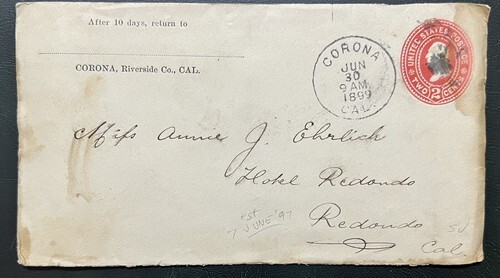 After 10 days, return to
CORONA, Riverside Co., CAL.
CORONA
JUN
30
9 AM
1899
CAL.
UNITED STATES POSTAGE
2
TWO CENTS
Miss Annie J. Ehrlich
Hotel Redondo
Redondo
Cal.
est
7 JUNE '97